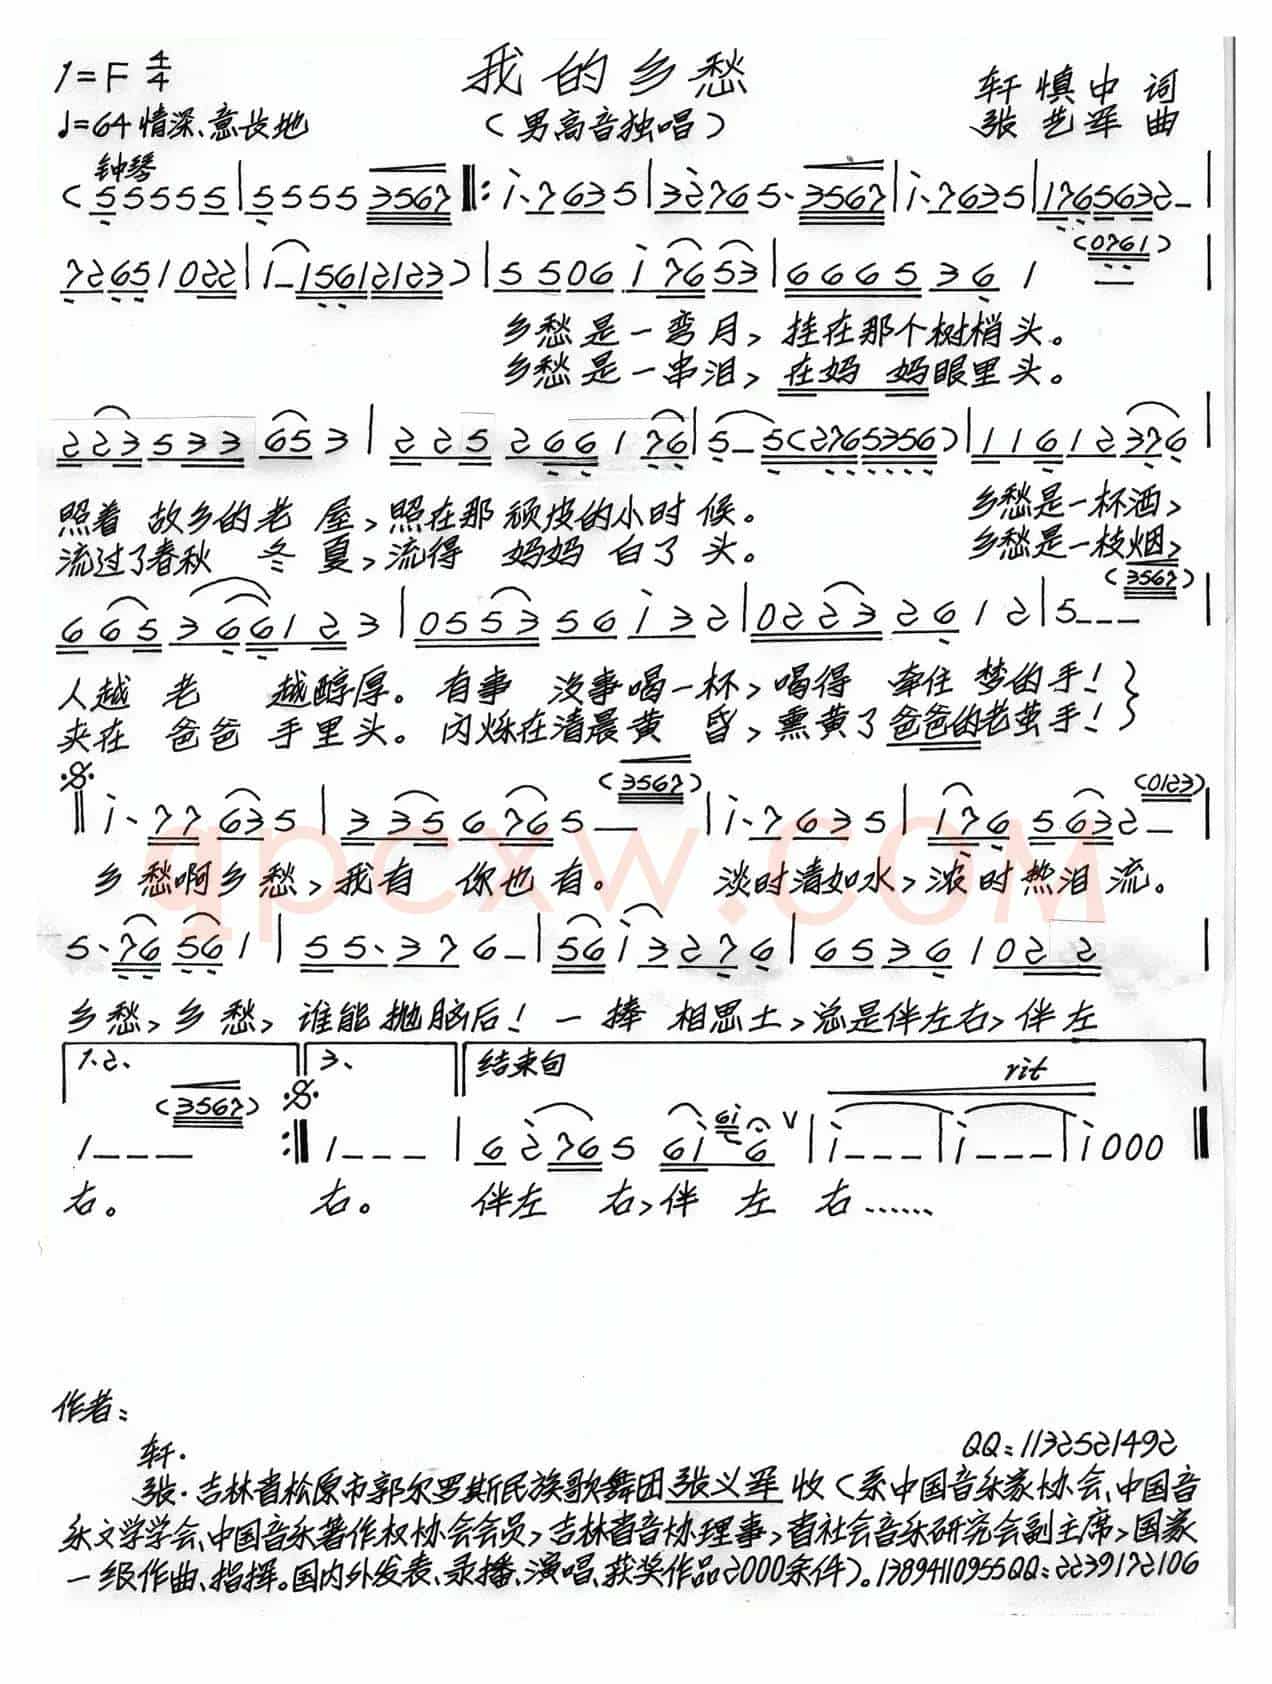 1=F 4/4
我的乡愁
♩=64 情深、意长地
（男高音独唱）
轩慎中 词
张艺军 曲
钟琴
(5 5 5 5 5 5 | 5 5 5 5 3567 ‖: i、7 6 3 5 | 3 2 7 6 5、3567 | i、7 6 3 5 | 1 7 6 5 6 3 2 – |
7 2 6 5 1 0 2 2 | i – 1 5 6 1 2 1 2 3) | 5 5 0 6 i 7 6 5 3 | 6 6 6 5 3 6 1 – (0761) |
乡愁是一弯月，挂在那个树梢头。
乡愁是一串泪，在妈 妈眼里头。
2 2 3 5 3 3 6 5 3 | 2 2 5 2 6 6 1 7 6 | 5 – 5 (2 7 6 5 3 5 6) | 1 1 6 1 2 3 7 6 |
照着 故乡的老 屋，照在那 顽皮的小时 候。 乡愁是一杯酒，
流过了春秋 冬 夏，流得 妈妈 白了 头。 乡愁是一枝烟，
6 6 5 3 6 6 1 2 3 | 0 5 5 3 5 6 i 3 2 | 0 2 2 3 2 6 1 2 | 5 – – – (3567) |
人越 老 越醇厚。有事 没事喝一杯，喝得 牵住 梦的手！
夹在 爸爸 手里头。闪烁在清晨黄 昏，熏黄了爸爸的老茧手！
‖ i、7 7 6 3 5 | 3 3 5 6 7 6 5 – (3567) | i、7 6 3 5 | i 7 6 5 6 3 2 – (0123) |
乡 愁啊乡 愁，我有 你也 有。 淡时清如水，浓 时热泪 流。
5、7 6 5 6 1 | 5 5、3 7 6 – | 5 6 i 3 2 7 6 | 6 5 3 6 1 0 2 2 |
乡愁，乡 愁，谁能 抛脑后！一捧 相思土，总是伴左右，伴左
1、2、 3、 结束句 rit
1 – – – (3567) :‖ 1 – – – | 6 2 7 6 5 6 i 6i 6 V | i – – – | i – – – | i 0 0 0 ‖
右。 右。 伴左 右，伴 左 右……
作者：
轩．
QQ：1132521492
张．吉林省松原市郭尔罗斯民族歌舞团张义军 收（系中国音乐家协会、中国音
乐文学学会、中国音乐著作权协会会员，吉林省音协理事，省社会音乐研究会副主席，国家
一级作曲、指挥。国内外发表、录播、演唱、获奖作品2000余件）。13894110955QQ：2239172106
qpcxw.com